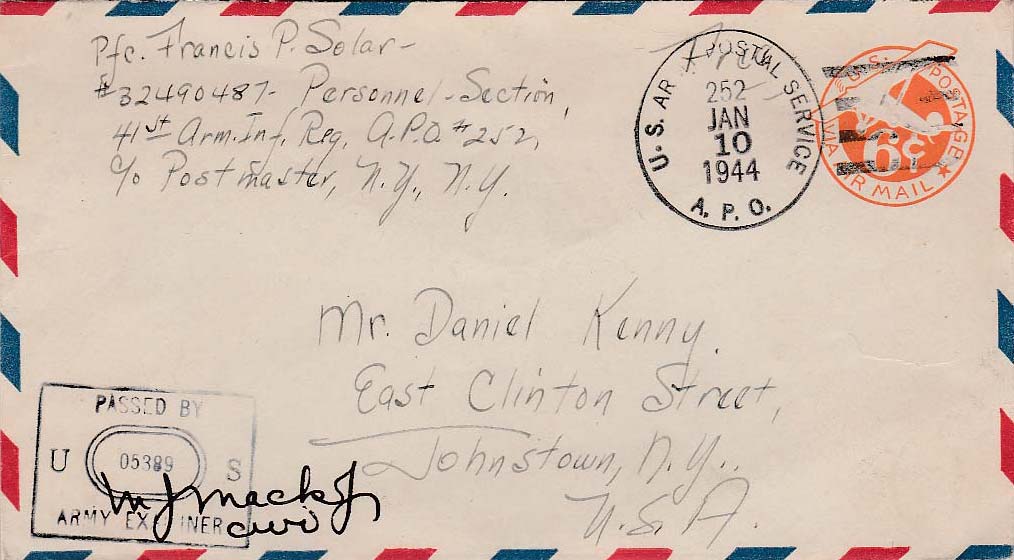 Pfc. Francis P. Solar-
#32490487- Personnel-Section,
41st Arm. Inf. Reg. A.P.O. #252,
c/o Postmaster, N.Y., N.Y.
Free
U.S. AR POSTAL SERVICE
252
JAN
10
1944
A.P.O.
U.S. POSTAGE
6¢
VIA AIR MAIL
Mr. Daniel Kenny.
East Clinton Street,
Johnstown, N.Y..
U.S.A.
PASSED BY
U 05389 S
ARMY EXAMINER